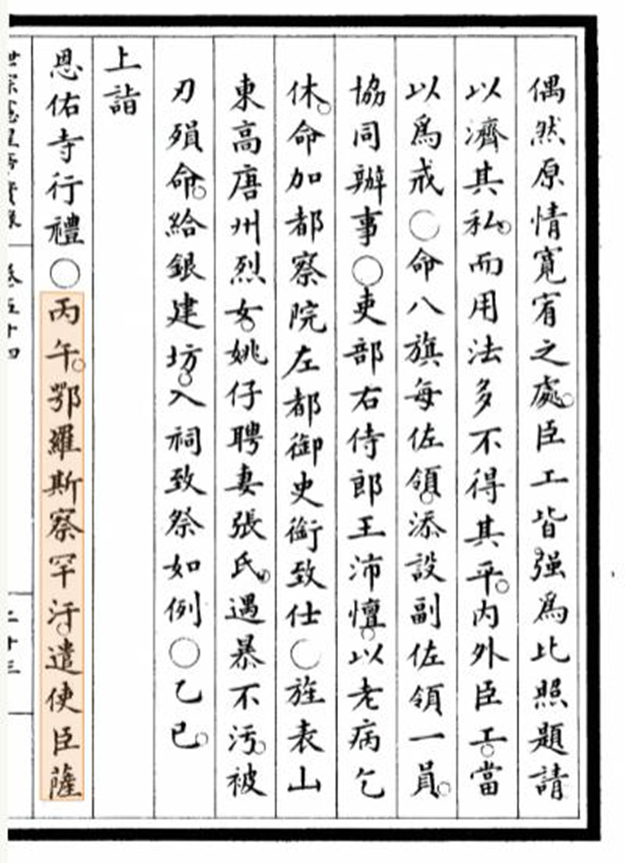 偶然原情寬宥之處。臣工皆。强爲比照題請
以濟其私。而用法多不得其平。内外臣工。當
以爲戒○命八旗每佐領。添設副佐領一員。
協同辦事○吏部右侍郎王沛憻。以老病乞
休。命加都察院左都御史銜致仕○旌表山
東高唐州烈女。姚仔聘妻張氏。遇暴不污。被
刃殞命。給銀建坊。入祠致祭如例○乙巳。
上詣
恩佑寺行禮○丙午。鄂羅斯察罕汗。遣使臣薩
世宗憲皇帝實錄 卷五十四 二十三